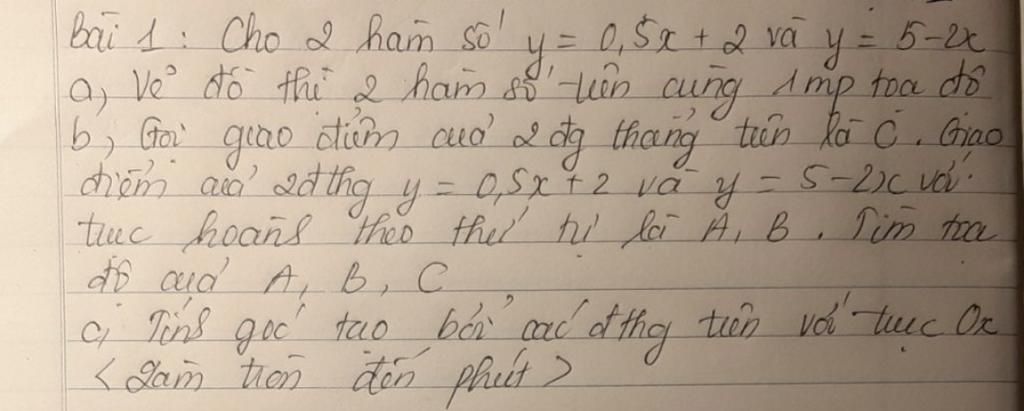 Bài 1 : Cho 2 hàm số y = 0,5x + 2 và y = 5-2x
a, Vẽ đồ thị 2 hàm số trên cùng 1mp toạ độ
b, Gọi giao điểm của 2 đg thẳng trên là C. Giao
điểm của 2đthg y = 0,5x + 2 và y = 5-2x với
trục hoành theo thứ tự là A, B. Tìm toạ
độ của A, B, C
c, Tính góc tạo bởi các đthg trên với trục Ox
< Làm tròn đến phút >